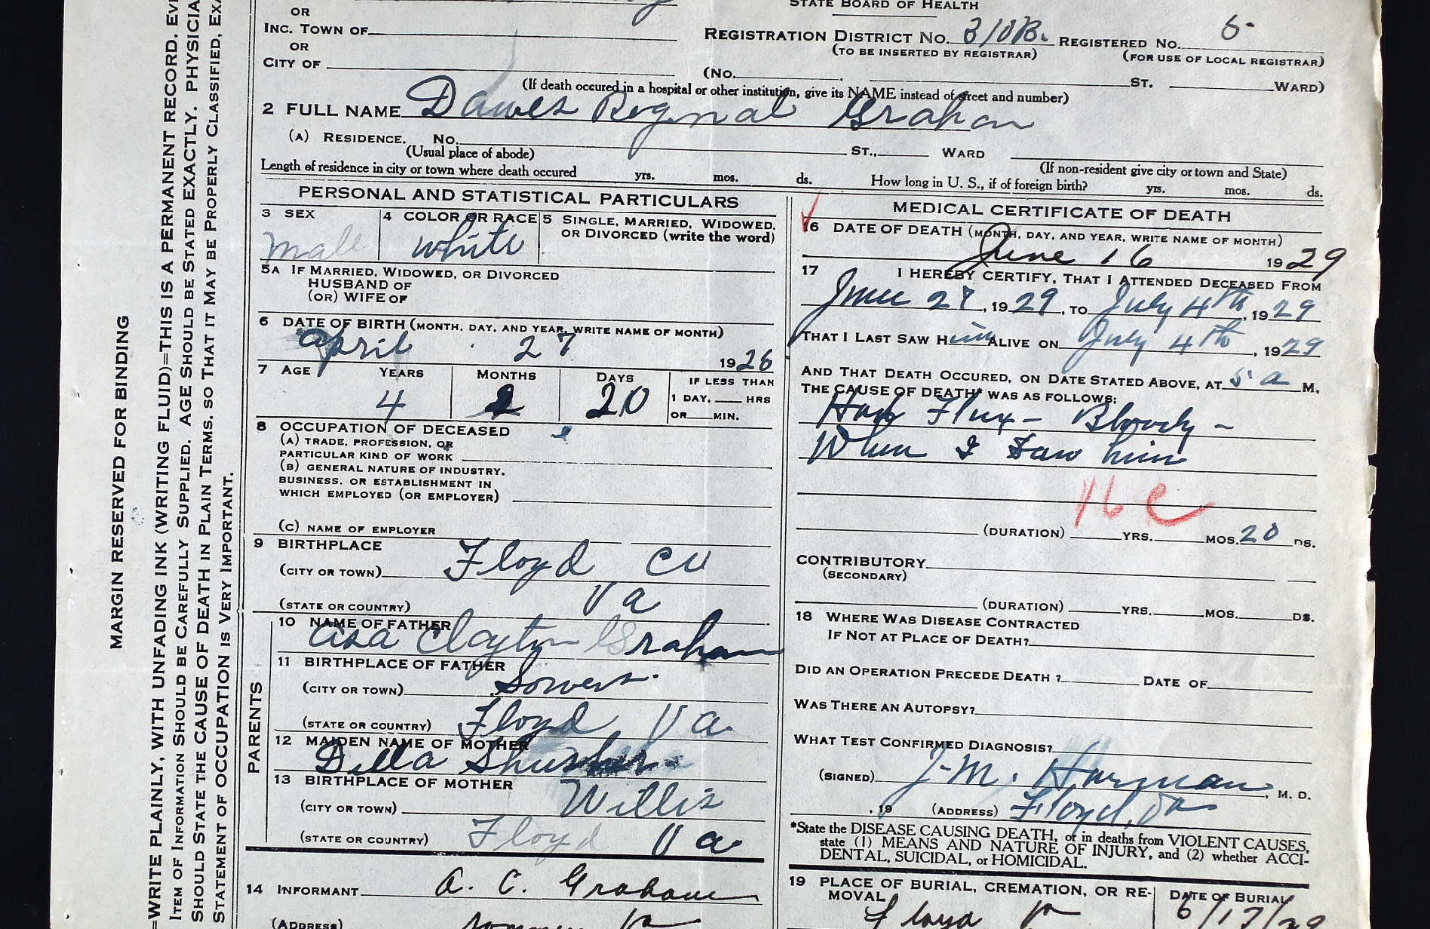 STATE BOARD OF HEALTH
OR
INC. TOWN OF
REGISTRATION DISTRICT NO. 310B. REGISTERED NO.
(TO BE INSERTED BY REGISTRAR) (FOR USE OF LOCAL REGISTRAR)
OR
CITY OF (No. ST. WARD)
(If death occured in a hospital or other institution, give its NAME instead of street and number)
2 FULL NAME Dawes Reginal Graham
(A) RESIDENCE. No. ST., WARD
(Usual place of abode) (If non-resident give city or town and State)
Length of residence in city or town where death occured yrs. mos. ds. How long in U. S., if of foreign birth? yrs. mos. ds.
PERSONAL AND STATISTICAL PARTICULARS
3 SEX
male
4 COLOR OR RACE
white
5 SINGLE, MARRIED, WIDOWED, OR DIVORCED (write the word)
5A IF MARRIED, WIDOWED, OR DIVORCED
HUSBAND OF
(OR) WIFE OF
6 DATE OF BIRTH (MONTH, DAY, AND YEAR, WRITE NAME OF MONTH)
April 27 1926
7 AGE YEARS MONTHS DAYS IF LESS THAN
1 DAY, HRS
OR MIN.
4 20
8 OCCUPATION OF DECEASED
(A) TRADE, PROFESSION, OR
PARTICULAR KIND OF WORK
(B) GENERAL NATURE OF INDUSTRY,
BUSINESS, OR ESTABLISHMENT IN
WHICH EMPLOYED (OR EMPLOYER)
(C) NAME OF EMPLOYER
9 BIRTHPLACE
(CITY OR TOWN) Floyd Co
(STATE OR COUNTRY) Va
PARENTS
10 NAME OF FATHER
Asa Clayton Graham
11 BIRTHPLACE OF FATHER
(CITY OR TOWN) Sowers
(STATE OR COUNTRY) Floyd Va
12 MAIDEN NAME OF MOTHER
Della
13 BIRTHPLACE OF MOTHER
(CITY OR TOWN) Willis
(STATE OR COUNTRY) Floyd Va
14 INFORMANT A. C. Graham
(ADDRESS) Va
MEDICAL CERTIFICATE OF DEATH
16 DATE OF DEATH (MONTH, DAY, AND YEAR, WRITE NAME OF MONTH)
June 16 1929
17 I HEREBY CERTIFY, THAT I ATTENDED DECEASED FROM
June 27, 1929, TO July 4th, 1929
THAT I LAST SAW Him ALIVE ON July 4th, 1929
AND THAT DEATH OCCURED, ON DATE STATED ABOVE, AT 5 a M.
THE CAUSE OF DEATH* WAS AS FOLLOWS:
Had Flux - Bloody -
When I Saw him
16 c
(DURATION) YRS. MOS. 20 DS.
CONTRIBUTORY
(SECONDARY)
(DURATION) YRS. MOS. DS.
18 WHERE WAS DISEASE CONTRACTED
IF NOT AT PLACE OF DEATH?
DID AN OPERATION PRECEDE DEATH ? DATE OF
WAS THERE AN AUTOPSY?
WHAT TEST CONFIRMED DIAGNOSIS?
(SIGNED) J. M. Harman, M. D.
, 19 (ADDRESS) Floyd, Va
*State the DISEASE CAUSING DEATH, or in deaths from VIOLENT CAUSES,
state (1) MEANS AND NATURE OF INJURY, and (2) whether ACCI-
DENTAL, SUICIDAL, or HOMICIDAL.
19 PLACE OF BURIAL, CREMATION, OR RE-
MOVAL
Floyd Va
DATE OF BURIAL
6/17/29
MARGIN RESERVED FOR BINDING
=WRITE PLAINLY, WITH UNFADING INK (WRITING FLUID)=THIS IS A PERMANENT RECORD.
ITEM OF INFORMATION SHOULD BE CAREFULLY SUPPLIED. AGE SHOULD BE STATED EXACTLY.
SHOULD STATE THE CAUSE OF DEATH IN PLAIN TERMS, SO THAT IT MAY BE PROPERLY CLASSIFIED,
STATEMENT OF OCCUPATION IS VERY IMPORTANT.